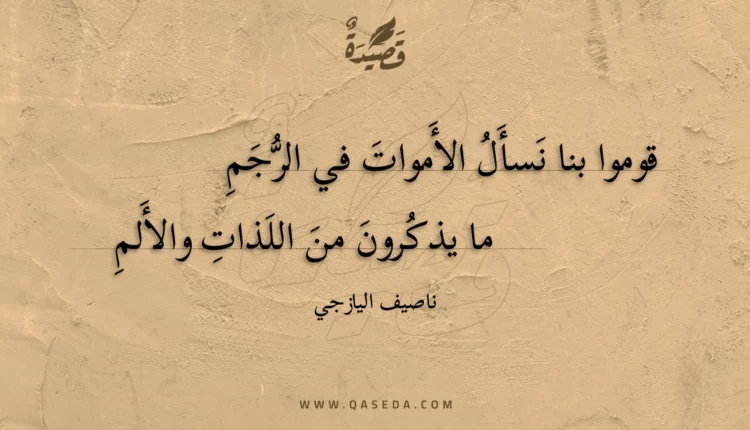 قَصِيْدَةٌ
قوموا بنا نَسأَلُ الأَمواتَ في الرُّجَمِ
ما يذكُرونَ منَ اللَذاتِ والأَلمِ
ناصيف اليازجي
WWW.QASEDA.COM